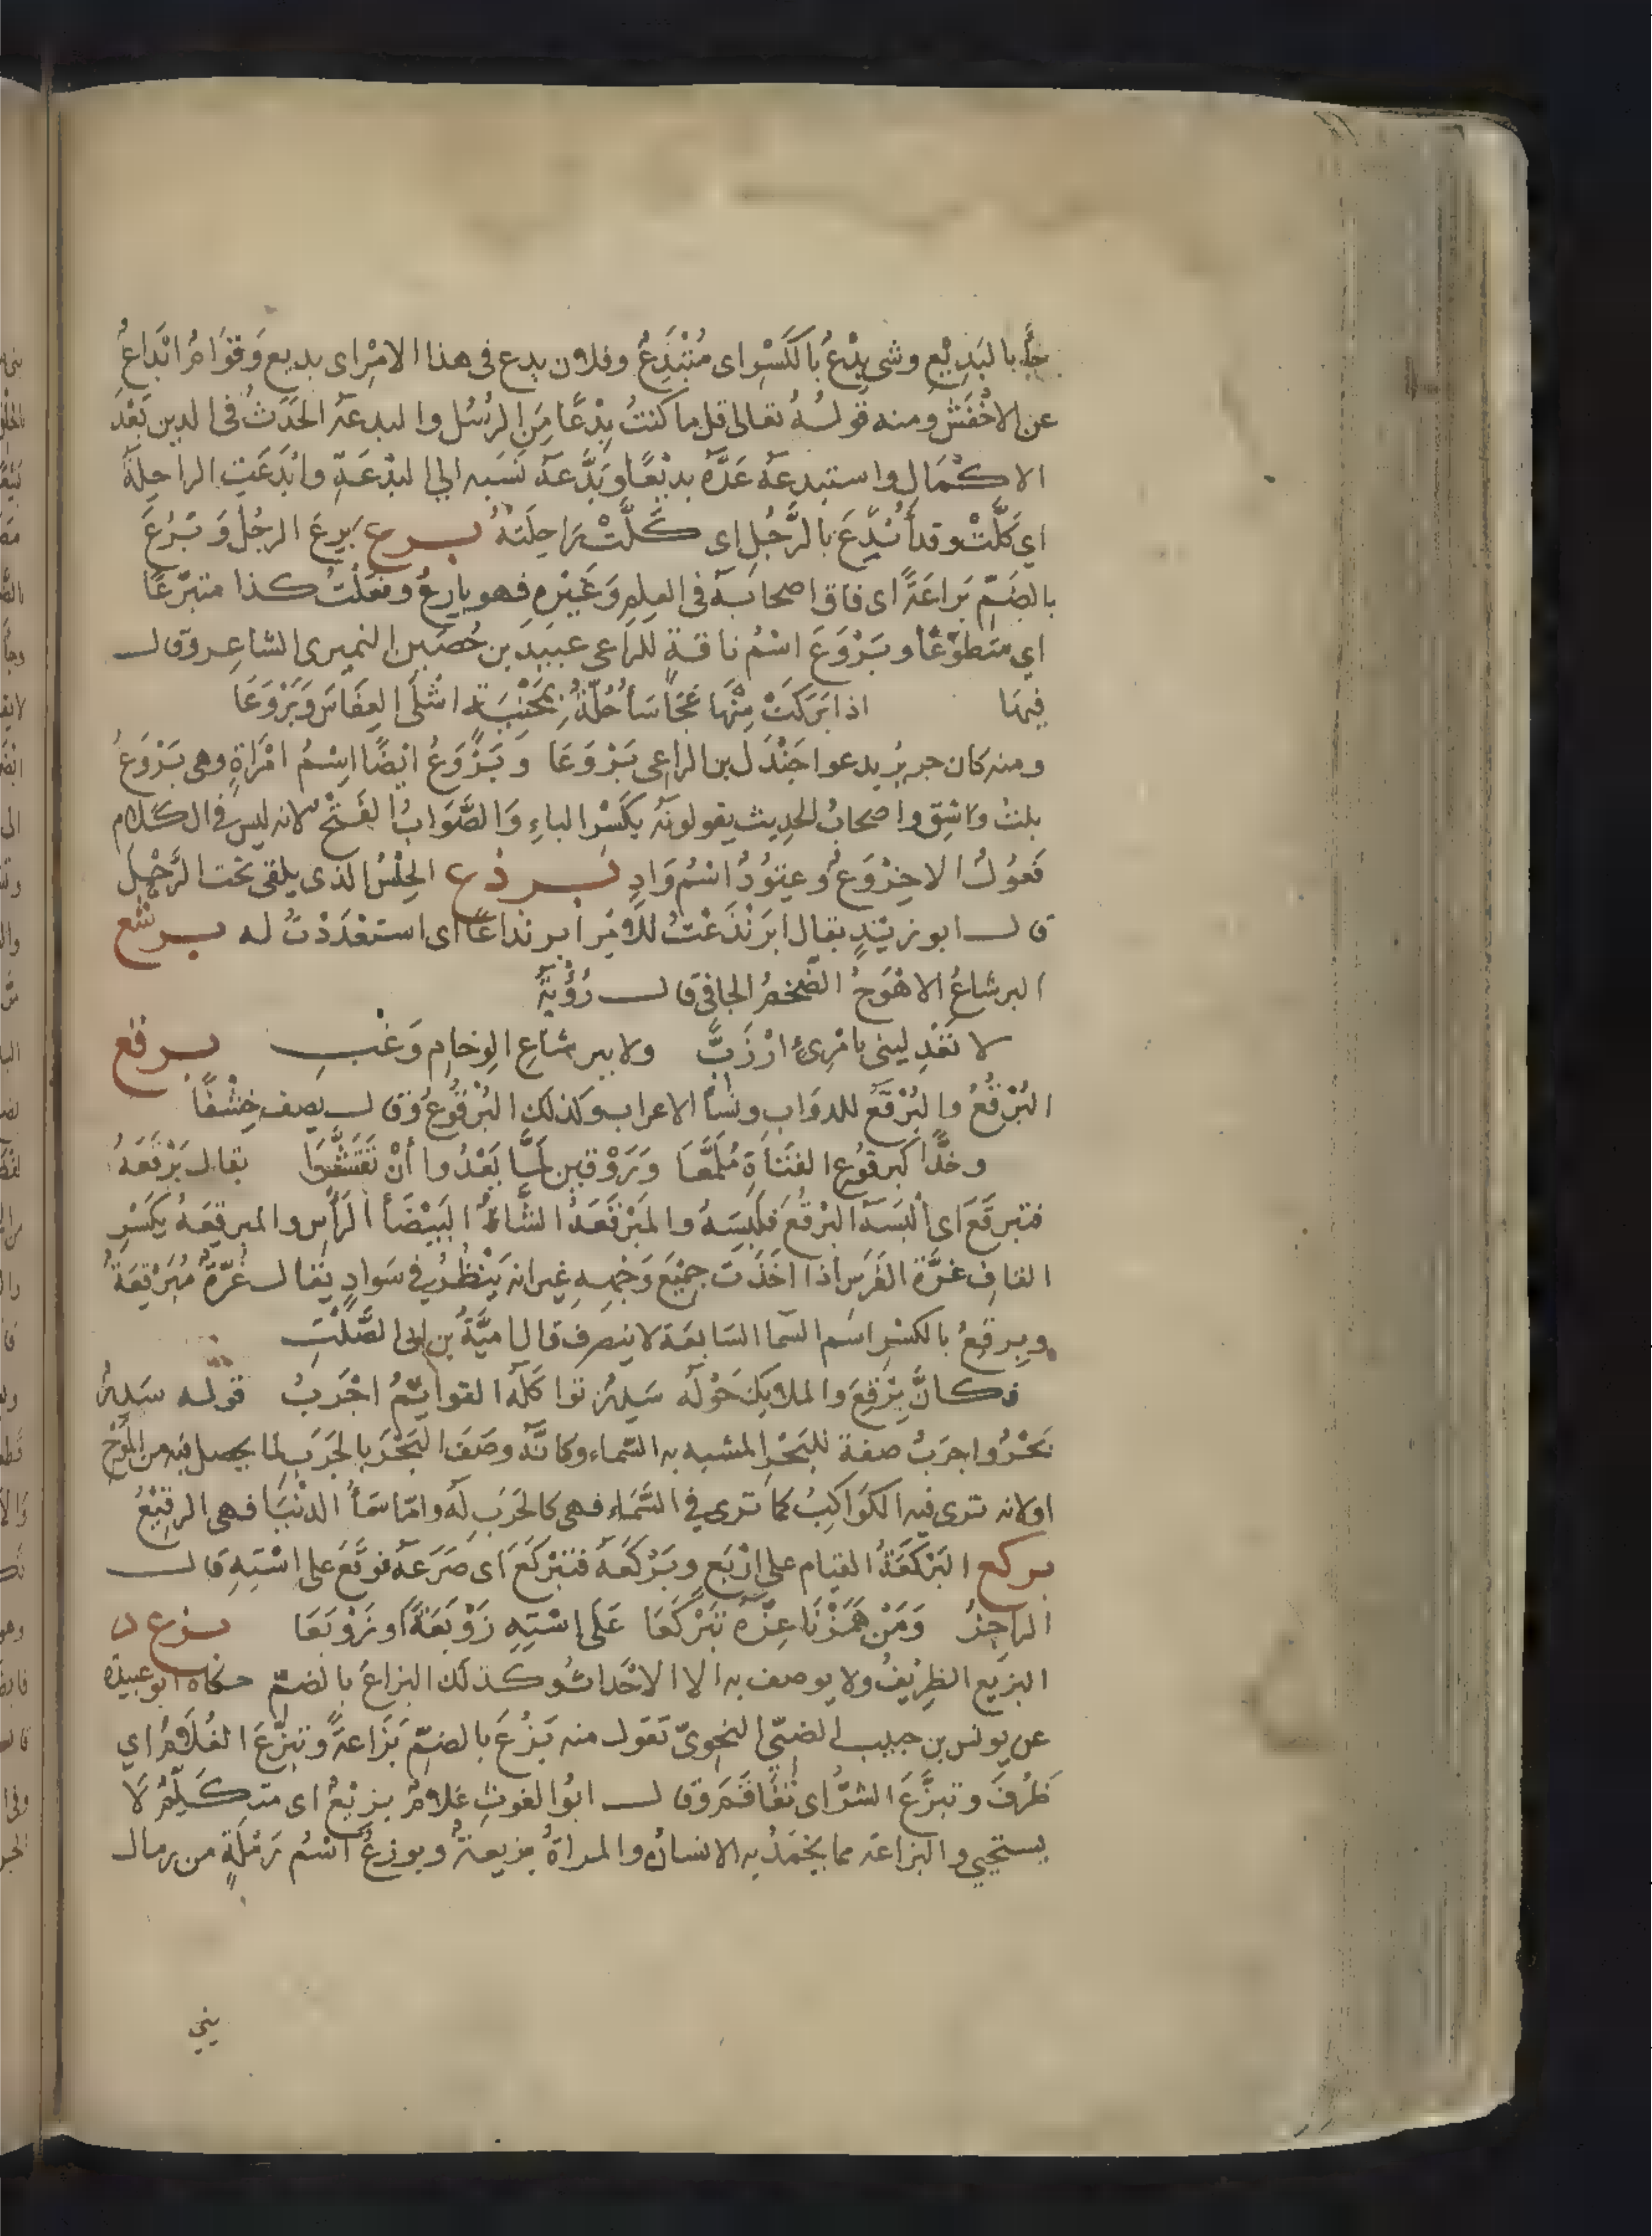 جأ بالبَدِيْعِ وشى بِدْعٌ بالكَسْرِ اى مُبْتَدِعٌ وفلان بدع فى هذا الامْرِ اى بديع وَقوَامٌ ابْدَاعٌ
عن الاخْفَشِ ومنه قولـهُ تعالى قل ما كنتُ بِدْعًا مِنَ الرُسُل والبدعة الحَدَثُ فى الدين بَعْدَ
الاكْمَالِ واستبدعهُ عَدَّهُ بديْعًا وبَدَّعهُ نَسَبه الى البِدْعَةِ وابْدَعَتِ الراحِلَةُ
اي كَلَّتْ وقد أُبْدِعَ بالرَّجُلِ اي كَلَّتْ رَاحِلَتهُ بـرع بَرِعَ الرجُلُ وَبَرُعَ
بالضَمِّ بَرَاعَةً اى فاق اصحابه فى العِلمِ وَغَيْرِهِ فهو بارِعٌ وفعَلْتُ كذا متبَرّعًا
اي مَتطوِّعًا وبَرْوَعَ اسْمُ ناقةٍ للرَاعى عبيدِ بن حُصَيْن النميرى الشاعِر وقال
فيها اذا بَرَكَتْ مِنْهَا عَجَاسَأُ جُلّةٌ بمَحْنِيَةٍ اشْلَى العِفَاسَ وَبَرْوَعَا
ومنه كان جريْرُ يدعوا جَنْدَل بن الراعى بَرْوَعَا وبَرْوَعُ ايْضًا اِسْمُ امْرَاةٍ وهى بَرْوَعُ
بنتُ واشِقٍ واصحابُ الحديث يقولونَهُ بكَسْرِ الباءِ وَالصَّوَابُ الفَتْحُ لانه ليسَ فى الكلام
فَعْوَلٌ الا خِرْوَعٌ وعِتْوَدٌ اسْمُ وَادٍ بـرذع الحِلْسُ الذى يلقى تحت الرَّحْلِ
قال ابو زيْدٍ يقال ابْرَنْذَعْتُ للامْرِ ابرنذاعًا اى استعْدَدْتُ له بـرشع
البرشاعُ الاهْوَجُ الضَّخمُ الجافى قال رُؤْبةُ
لا تَعْدِلينى بامْرِئٍ ارْزَبِّ ولا ببرشَاعِ الوِخَامِ وَغْبِ بـرقع
البُرْقُعُ والبُرْقَعُ للدوَابِ ونِسَأ الاعراب وكذلك البُرْقُوعُ وقال يصف خِشْفًا
وخَدًّا كبرقُوع الفَتَاةِ مُلَمَّعَا وَرَوْقين لَمَّا بَعْدُوا أنْ تَقَشَّرَا يقال بَرْقَعَهُ
فتبرقَعَ اى اَلْبَسَهُ البُرْقُعَ فلَبِسَهُ والمُبَرْقَعَةُ الشَّاةُ البَيْضَأُ الرَأسِ والمبرقِعَهُ بكَسْرِ
القافِ غرَّة الفَرَسِ اذا اخَذَتْ جَمِيْعَ وَجْهِهِ غير انه يَنْظُرُ في سَوادٍ يقال غُرّةٌ مُبَرْقِعَةٌ
وبِرقِعُ بالكسْرِ اسم السّما السَابعَة لا ينصرف قال اميَّةُ بن ابى الصَّلْتِ
فكانَّ بِرْقِعَ والملايِكَ حَوْلَهُ سَدِرٌ تواكَلَهُ القوايمُ اجْرَبُ قوله سَدِرٌ
بَحْرٌ واجرَبُ صفة للبَحْرِ المشبه به السّماء وكانّهُ وصَفَ البَحْرَ بالجَرَبِ لما يحصل فيه من المَوْجِ
اولانه ترى فيه الكَوَاكِبُ كما ترى في السَّمَاءِ فهى كالجَرَبِ لَهُ وامّا سَمَأُ الدنْيَا فهى الرقِيْعُ
بركع البَرْكَعَةُ القيام على ارْبَعٍ وبَرْكَعَهُ فتبَرْكَعَ اى صَرَعَهُ فوقَعَ على اسْتِهِ قال
الراجزُ وَمَنْ هَمَزْنَا عِزَّهُ تَبَرْكَعَا عَلَى اسْتِهِ زَوْبَعَةً او زَوْبَعَا بـزع
البزِيع الظرِيفُ ولا يوصف به الا الاحْدَاثُ وكذلك البزاعُ بالضمّ حكاه ابو عبيدة
عن يونس بن حبيب الضبّي النحوىّ تقول منه بَزُعَ بالضمِّ بَزَاعةً وتبزّعَ الغُلامُ اي
ظَرُفَ وتبزَّعَ الشرُّ اى تفَاقَمَ وقال ابُوا الغوثِ غلامٌ بزيْعٌ اى متكَلِّمٌ لا
يستحيى والبزاعة مما يُحْمَدُ به الانسانُ والمراةُ بزيعةٌ وبوزعُ اسْمُ رَمْلَةٍ من رمال
بني